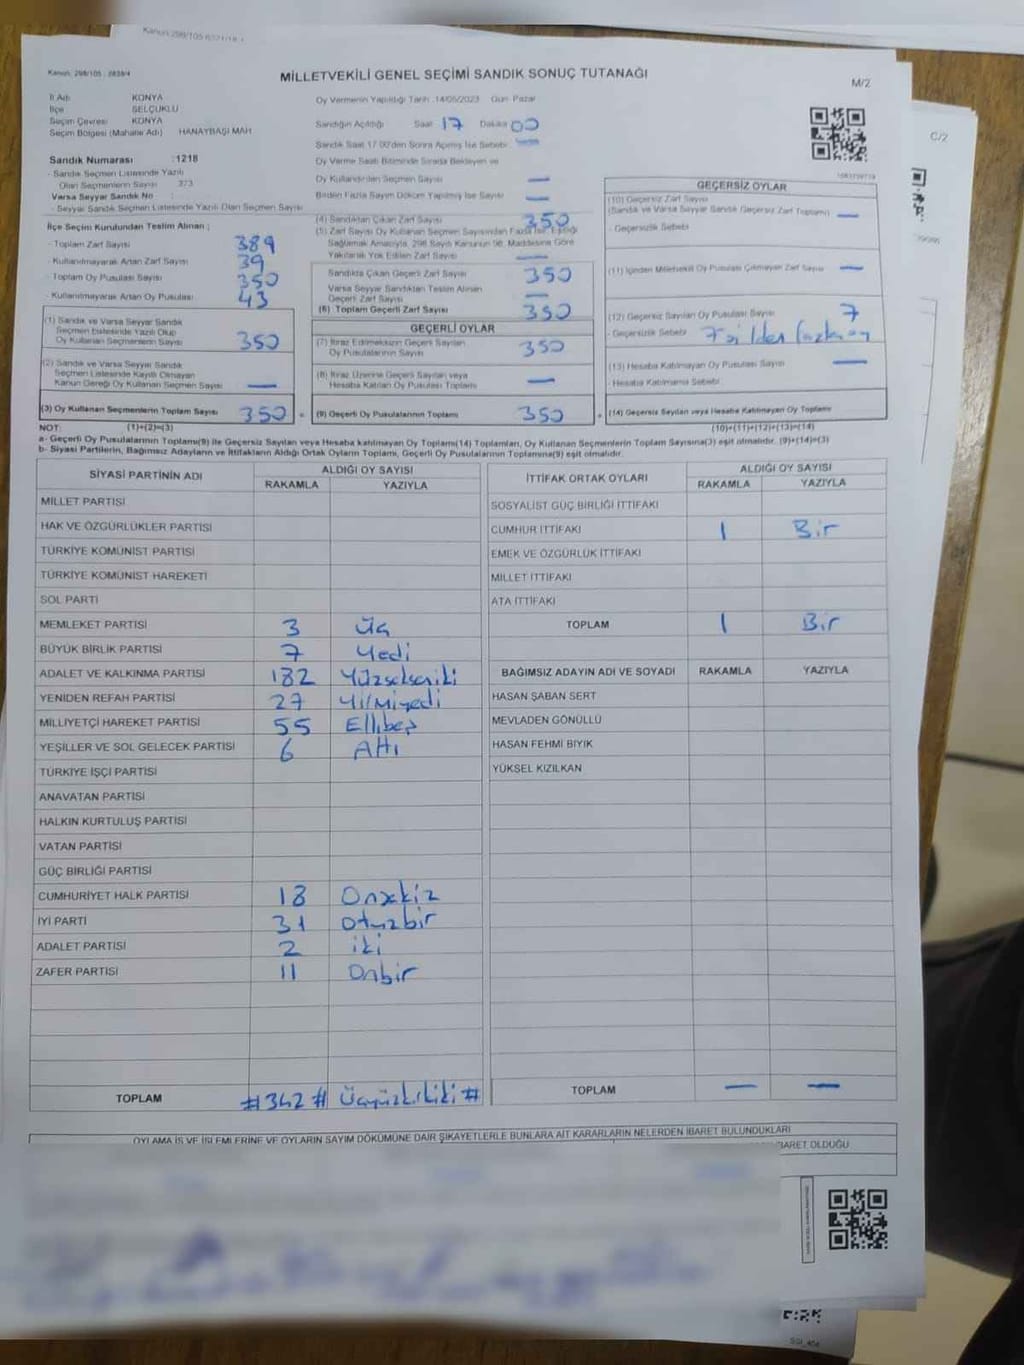 Kanun: 298/105
MİLLETVEKİLİ GENEL SEÇİMİ SANDIK SONUÇ TUTANAĞI
M/2
C/2
İl Adı KONYA
İlçe SELÇUKLU
Seçim Çevresi KONYA
Seçim Bölgesi (Mahalle Adı) HANAYBAŞI MAH
Oy Vermenin Yapıldığı Tarih :14/05/2023 Gün: Pazar
Sandığın Açıldığı Saat 17 Dakika 00
Sandık Saat 17:00'den Sonra Açılmış İse Sebebi —
Oy Verme Saati Bitiminde Sırada Bekleyen ve
Oy Kullandırılan Seçmen Sayısı —
Birden Fazla Sayım Döküm Yapılmış İse Sayısı —
Sandık Numarası :1218
- Sandık Seçmen Listesinde Yazılı
Olan Seçmenlerin Sayısı 373
Varsa Seyyar Sandık No :
- Seyyar Sandık Seçmen Listesinde Yazılı Olan Seçmen Sayısı
İlçe Seçim Kurulundan Teslim Alınan ;
- Toplam Zarf Sayısı 389
- Kullanılmayarak Artan Zarf Sayısı 39
- Toplam Oy Pusulası Sayısı 350
- Kullanılmayarak Artan Oy Pusulası 43
(1) Sandık ve Varsa Seyyar Sandık
Seçmen Listesinde Yazılı Olup
Oy Kullanan Seçmenlerin Sayısı 350
(2) Sandık ve Varsa Seyyar Sandık
Seçmen Listesinde Kayıtlı Olmayan
Kanun Gereği Oy Kullanan Seçmen Sayısı —
(3) Oy Kullanan Seçmenlerin Toplam Sayısı 350
(4) Sandıktan Çıkan Zarf Sayısı 350
(5) Zarf Sayısı Oy Kullanan Seçmen Sayısından Fazla İse, Eşitliği
Sağlamak Amacıyla, 298 Sayılı Kanunun 98. Maddesine Göre
Yakılarak Yok Edilen Zarf Sayısı —
Sandıkta Çıkan Geçerli Zarf Sayısı 350
Varsa Seyyar Sandıktan Teslim Alınan
Geçerli Zarf Sayısı —
(6) Toplam Geçerli Zarf Sayısı 350
GEÇERLİ OYLAR
(7) İtiraz Edilmeksizin Geçerli Sayılan
Oy Pusulalarının Sayısı 350
(8) İtiraz Üzerine Geçerli Sayılan veya
Hesaba Katılan Oy Pusulası Toplamı —
(9) Geçerli Oy Pusulalarının Toplamı 350
GEÇERSİZ OYLAR
(10) Geçersiz Zarf Sayısı
(Sandık ve Varsa Seyyar Sandık Geçersiz Zarf Toplamı) —
- Geçersizlik Sebebi
(11) İçinden Milletvekili Oy Pusulası Çıkmayan Zarf Sayısı —
(12) Geçersiz Sayılan Oy Pusulası Sayısı 7
- Geçersizlik Sebebi
(13) Hesaba Katılmayan Oy Pusulası Sayısı —
- Hesaba Katılmama Sebebi
(14) Geçersiz Sayılan veya Hesaba Katılmayan Oy Toplamı
NOT: (1)+(2)=(3) (10)+(11)+(12)+(13)=(14)
a- Geçerli Oy Pusulalarının Toplamı(9) ile Geçersiz Sayılan veya Hesaba katılmayan Oy Toplamı(14) Toplamları, Oy Kullanan Seçmenlerin Toplam Sayısına(3) eşit olmalıdır. (9)+(14)=(3)
b- Siyasi Partilerin, Bağımsız Adayların ve İttifakların Aldığı Ortak Oyların Toplamı, Geçerli Oy Pusulalarının Toplamına(9) eşit olmalıdır.
SİYASİ PARTİNİN ADI ALDIĞI OY SAYISI
RAKAMLA YAZIYLA
MİLLET PARTİSİ
HAK VE ÖZGÜRLÜKLER PARTİSİ
TÜRKİYE KOMÜNİST PARTİSİ
TÜRKİYE KOMÜNİST HAREKETİ
SOL PARTİ
MEMLEKET PARTİSİ 3 Üç
BÜYÜK BİRLİK PARTİSİ 7 Yedi
ADALET VE KALKINMA PARTİSİ 182 Yüzsekseniki
YENİDEN REFAH PARTİSİ 27 Yirmiyedi
MİLLİYETÇİ HAREKET PARTİSİ 55 Ellibeş
YEŞİLLER VE SOL GELECEK PARTİSİ 6 Altı
TÜRKİYE İŞÇİ PARTİSİ
ANAVATAN PARTİSİ
HALKIN KURTULUŞ PARTİSİ
VATAN PARTİSİ
GÜÇ BİRLİĞİ PARTİSİ
CUMHURİYET HALK PARTİSİ 18 Onsekiz
İYİ PARTİ 31 Otuzbir
ADALET PARTİSİ 2 iki
ZAFER PARTİSİ 11 Onbir
TOPLAM #342# Üçyüzkırkiki#
İTTİFAK ORTAK OYLARI ALDIĞI OY SAYISI
RAKAMLA YAZIYLA
SOSYALİST GÜÇ BİRLİĞİ İTTİFAKI
CUMHUR İTTİFAKI 1 Bir
EMEK VE ÖZGÜRLÜK İTTİFAKI
MİLLET İTTİFAKI
ATA İTTİFAKI
TOPLAM 1 Bir
BAĞIMSIZ ADAYIN ADI VE SOYADI RAKAMLA YAZIYLA
HASAN ŞABAN SERT
MEVLADEN GÖNÜLLÜ
HASAN FEHMİ BIYIK
YÜKSEL KIZILKAN
TOPLAM — —
OYLAMA İŞ VE İŞLEMLERİNE VE OYLARIN SAYIM DÖKÜMÜNE DAİR ŞİKAYETLERLE BUNLARA AİT KARARLARIN NELERDEN İBARET BULUNDUKLARI
İBARET OLDUĞU